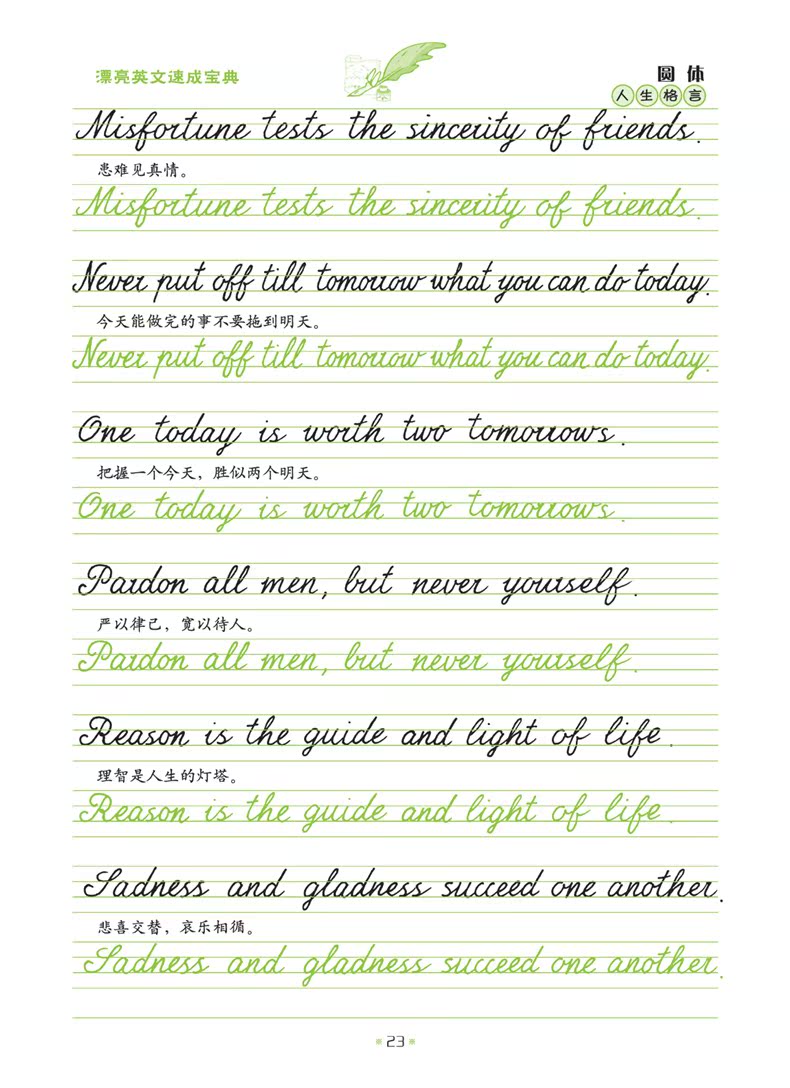 漂亮英文速成宝典
圆体
人生格言
Misfortune tests the sincerity of friends.
患难见真情。
Misfortune tests the sincerity of friends.
Never put off till tomorrow what you can do today.
今天能做完的事不要拖到明天。
Never put off till tomorrow what you can do today.
One today is worth two tomorrows.
把握一个今天，胜似两个明天。
One today is worth two tomorrows.
Pardon all men, but never yourself.
严以律己，宽以待人。
Pardon all men, but never yourself.
Reason is the guide and light of life.
理智是人生的灯塔。
Reason is the guide and light of life.
Sadness and gladness succeed one another.
悲喜交替，哀乐相循。
Sadness and gladness succeed one another.
23